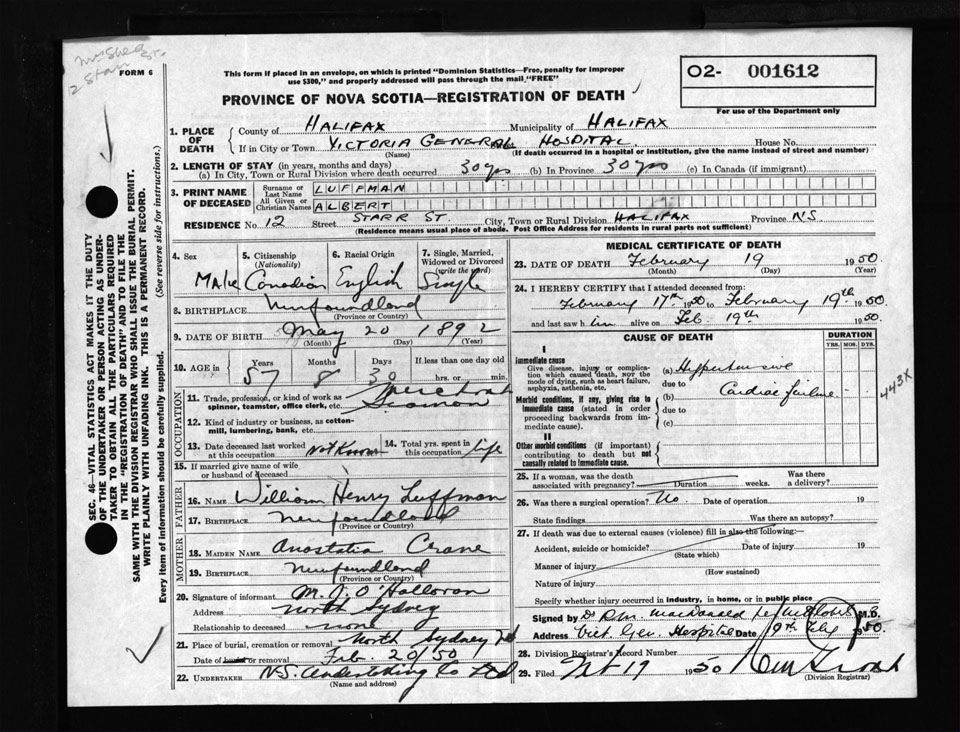 Mr Shea
Starr St.
2
FORM 6
This form if placed in an envelope, on which is printed "Dominion Statistics—Free, penalty for improper
use $300," and properly addressed will pass through the mail "FREE"
PROVINCE OF NOVA SCOTIA—REGISTRATION OF DEATH
02- 001612
For use of the Department only
SEC. 46—VITAL STATISTICS ACT MAKES IT THE DUTY
OF THE UNDERTAKER OR PERSON ACTING AS UNDER-
TAKER TO OBTAIN ALL THE PARTICULARS REQUIRED
IN THE "REGISTRATION OF DEATH" AND TO FILE THE
SAME WITH THE DIVISION REGISTRAR WHO SHALL ISSUE THE BURIAL PERMIT.
WRITE PLAINLY WITH UNFADING INK. THIS IS A PERMANENT RECORD.
Every item of information should be carefully supplied. (See reverse side for instructions.)
1. PLACE OF DEATH
County of HALIFAX Municipality of HALIFAX
If in City or Town VICTORIA GENERAL HOSPITAL House No.
(Name) (If death occurred in a hospital or institution, give the name instead of street and number)
2. LENGTH OF STAY (in years, months and days)
(a) In City, Town or Rural Division where death occurred 30 yrs (b) In Province 30 yrs (c) In Canada (if immigrant)
3. PRINT NAME OF DECEASED
Surname or Last Name LUFFMAN
All Given or Christian Names ALBERT
RESIDENCE No. 12 Street STARR ST. City, Town or Rural Division HALIFAX Province NS
(Residence means usual place of abode. Post Office Address for residents in rural parts not sufficient)
4. Sex Male
5. Citizenship (Nationality) Canadian
6. Racial Origin English
7. Single, Married, Widowed or Divorced (write the word) Single
8. BIRTHPLACE Newfoundland
(Province or Country)
9. DATE OF BIRTH May 20 1892
(Month) (Day) (Year)
10. AGE in Years Months Days If less than one day old
57 8 30 hrs. or min.
OCCUPATION
11. Trade, profession, or kind of work as spinner, teamster, office clerk, etc. Merchant Seaman
12. Kind of industry or business, as cotton-mill, lumbering, bank, etc.
13. Date deceased last worked at this occupation Not Known
14. Total yrs. spent in this occupation life
15. If married give name of wife or husband of deceased
FATHER
16. NAME William Henry Luffman
17. BIRTHPLACE Newfoundland
(Province or Country)
MOTHER
18. MAIDEN NAME Anastatia Crane
19. BIRTHPLACE Newfoundland
(Province or Country)
20. Signature of informant M. J. O'Halloran
Address North Sydney
Relationship to deceased none
21. Place of burial, cremation or removal North Sydney
Date of burial or removal Feb. 20/50
22. UNDERTAKER N.S. Undertaking Co Ltd
(Name and address)
MEDICAL CERTIFICATE OF DEATH
23. DATE OF DEATH February 19 1950
(Month) (Day) (Year)
24. I HEREBY CERTIFY that I attended deceased from:
February 17th 1950 to February 19th 1950
and last saw him alive on Feb. 19th 1950.
CAUSE OF DEATH
DURATION
YRS. MOS. DYS.
I
Immediate cause
Give disease, injury or complication which caused death, not the mode of dying, such as heart failure, asphyxia, asthenia, etc.
(a) Hypertensive
due to
Morbid conditions, if any, giving rise to immediate cause (stated in order proceeding backwards from immediate cause).
(b) Cardiac failure
due to
(c)
443X
II
Other morbid conditions (if important) contributing to death but not causally related to immediate cause.
25. If a woman, was the death associated with pregnancy? Duration weeks. Was there a delivery?
26. Was there a surgical operation? No Date of operation 19
State findings Was there an autopsy?
27. If death was due to external causes (violence) fill in also the following:
Accident, suicide or homicide? Date of injury 19
(State which)
Manner of injury
(How sustained)
Nature of injury
Specify whether injury occurred in industry, in home, or in public place
Signed by Dr MacDonald M.D.
Address Vict. Gen. Hospital Date 19th Feb 1950.
28. Division Registrar's Record Number
29. Filed Feb 19 1950
(Division Registrar)